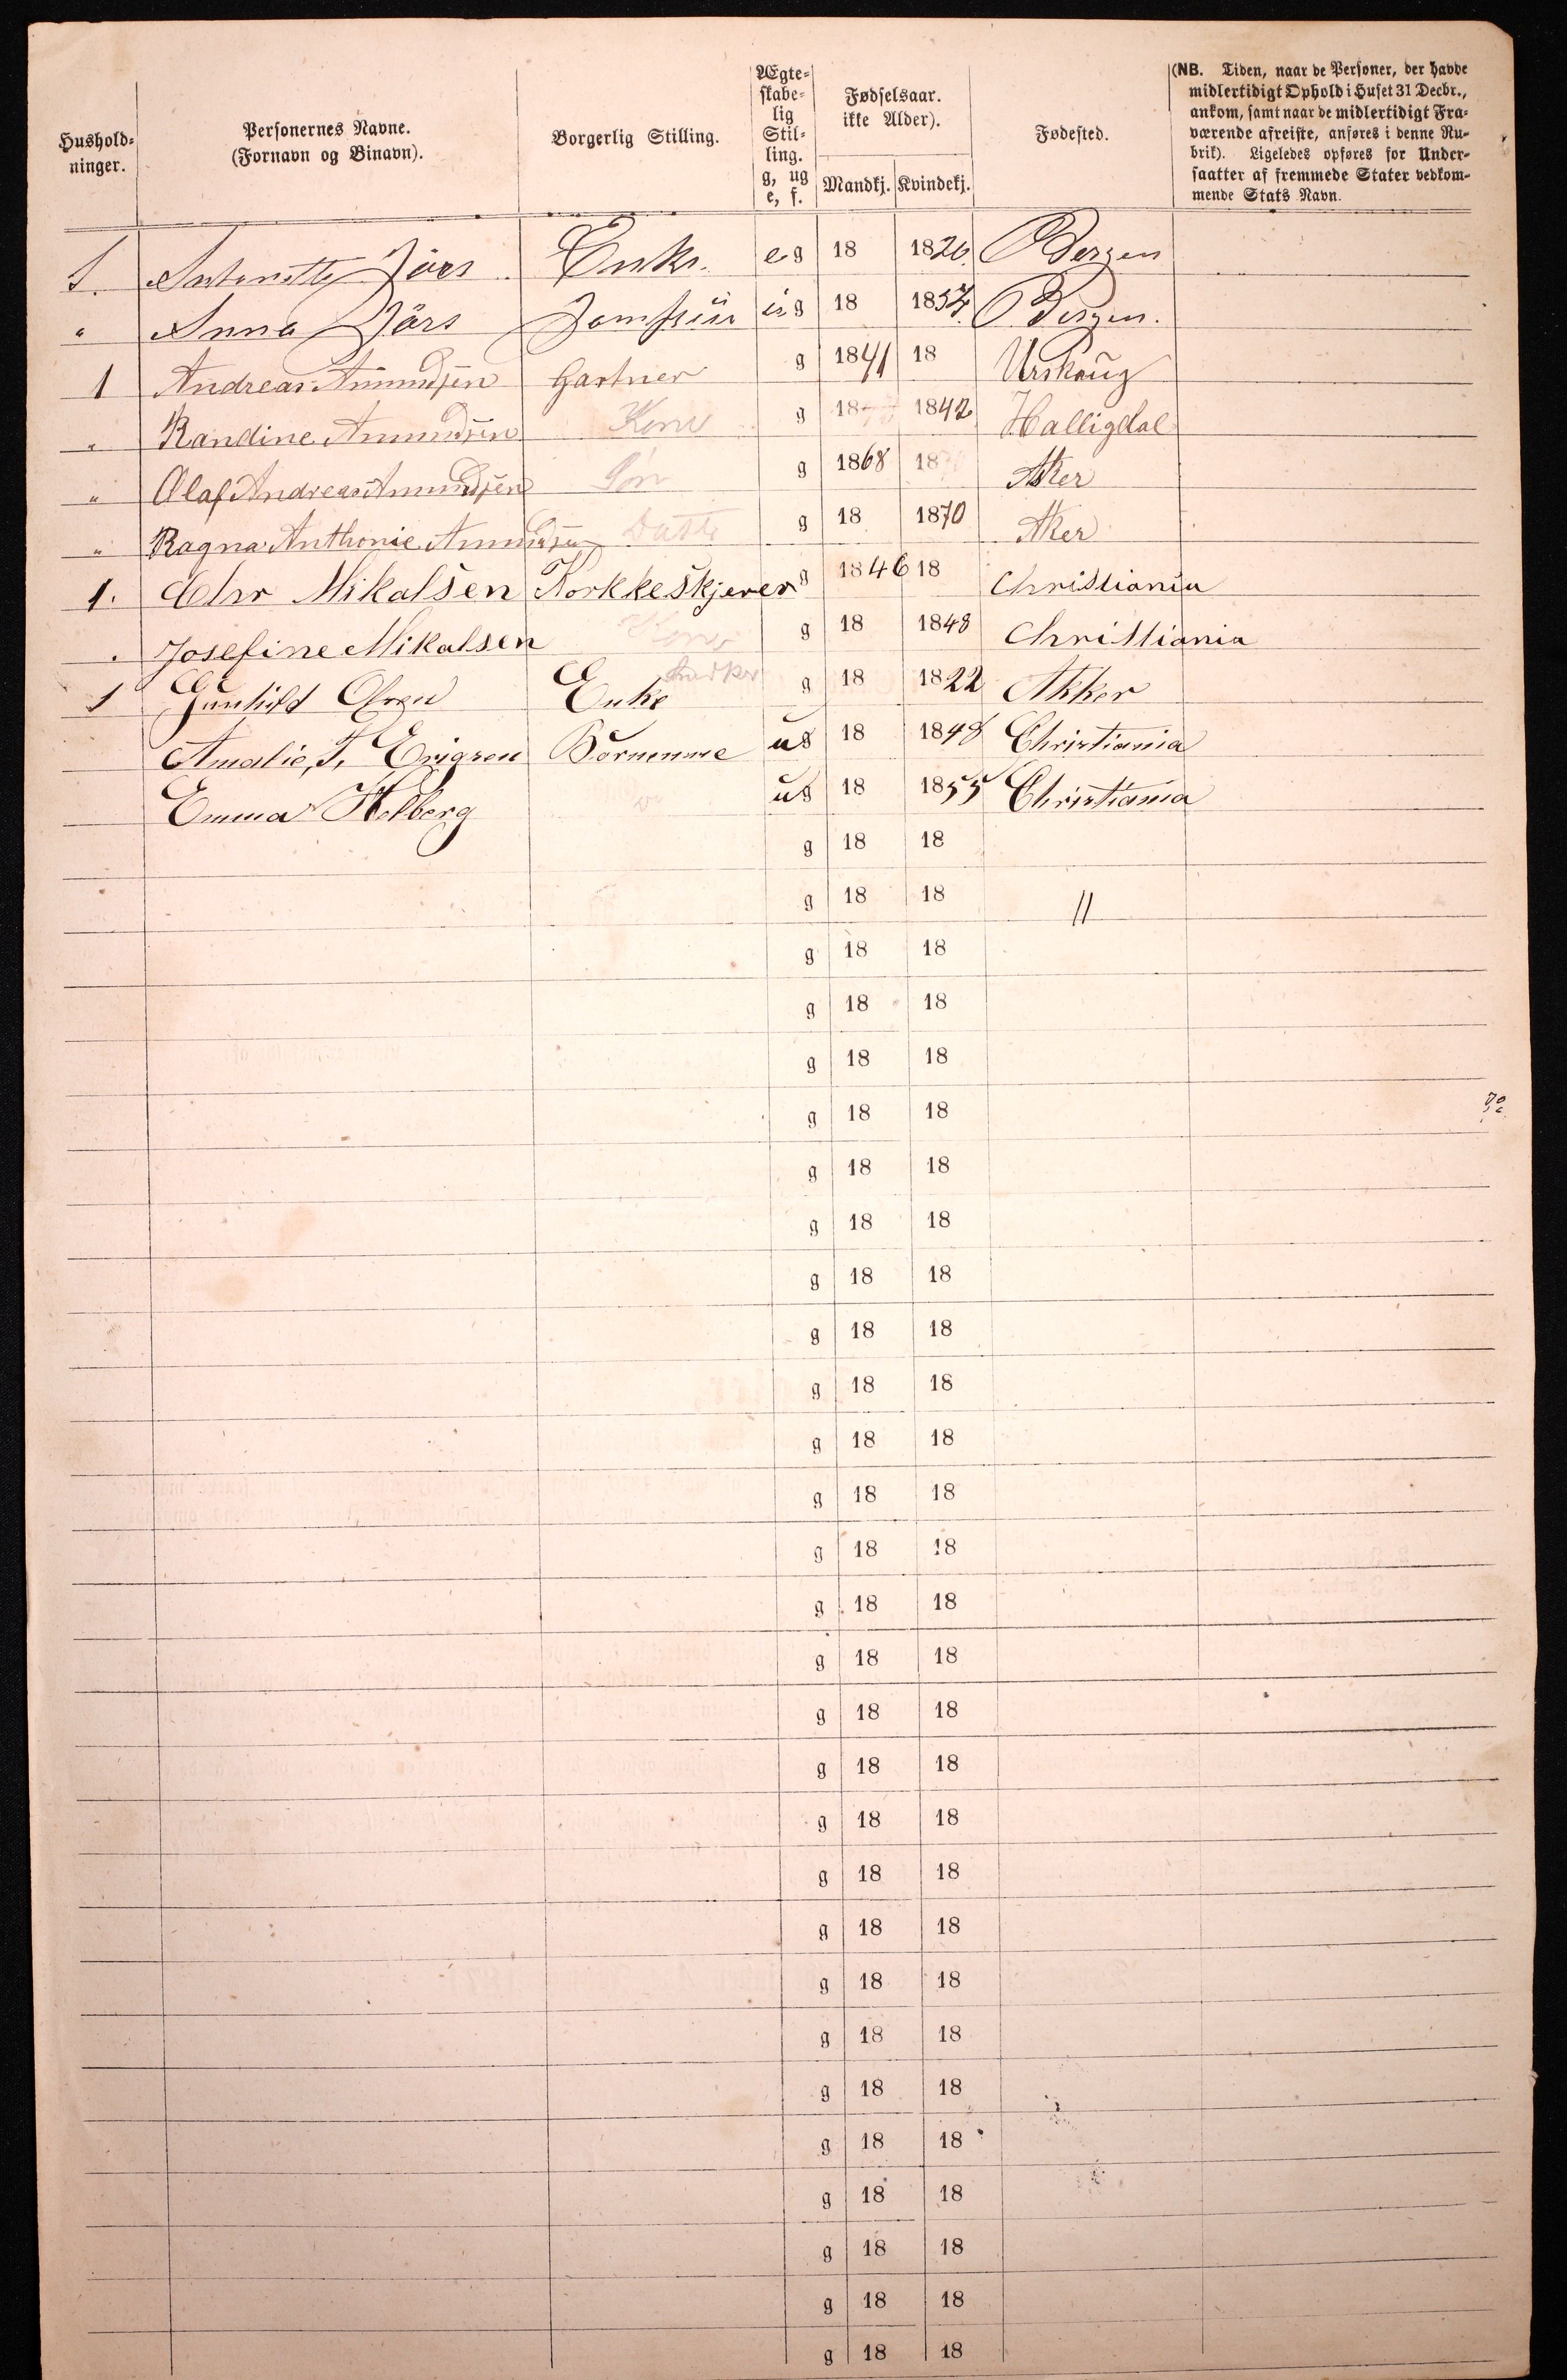 Hushold-
ninger.
Personernes Navne.
(Fornavn og Binavn).
Borgerlig Stilling.
Ægte-
skabe-
lig
Stil-
ling.
g, ug
e, f.
Fødselsaar.
ikke Alder).
Mandkj. Kvindekj.
Fødested.
(NB. Tiden, naar de Personer, der havde
midlertidigt Ophold i Huset 31 Decbr.,
ankom, samt naar de midlertidigt Fra-
værende afreiste, anføres i denne Ru-
brik). Ligeledes opføres for Under-
saatter af fremmede Stater vedkom-
mende Stats Navn.
1. Antonette Jörs Enke. e g 18 1826 Bergen
" Anna Jörs Jomfrue ug 18 1857. Bergen.
1 Andreas Amundsen Gartner g 1841 18 Urskoug
" Randine Amundsen Kone g 18 1842 Halligdal
" Olaf Andreas Amundsen Søn g 1868 18 Aker
" Ragna Anthonie Amundsen Datte g 18 1870 Aker
1. Chr Mikalsen Korkkeskjerer g 1846 18 Christiania
. Josefine Mikalsen Kone g 18 1848 Christiania
1 Gunhild Olsen Enke g 18 1822 Akker
Amalie, T, Erigsen Børnenme ug 18 1848 Christiania
Emma Holberg ug 18 1855 Christiania
g 18 18
g 18 18 "
g 18 18
g 18 18
g 18 18
g 18 18
g 18 18
g 18 18
g 18 18
g 18 18
g 18 18
g 18 18
g 18 18
g 18 18
g 18 18
g 18 18
g 18 18
g 18 18
g 18 18
g 18 18
g 18 18
g 18 18
g 18 18
g 18 18
g 18 18
g 18 18
g 18 18
g 18 18
g 18 18